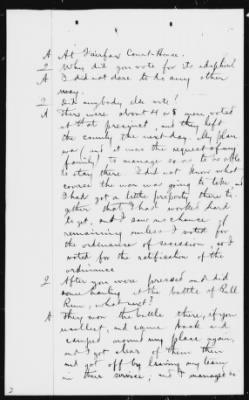 A At Fairfax Court-House.
Q Why did you vote for its adoption?
A I did not dare to do any other
way.
Q Did anybody else vote?
A There were about 4 or 5 men voted
at that precinct, and they left
the county the next day. My plan
was (and it was the request of my
family) to manage so as to be able
to stay there. I did not know what
course the war was going to take, and
I had got a little property there to-
gether that I had worked hard
to get, and I saw no chance of
remaining unless I voted for
the ordinance of secession, so I
voted for the ratification of the
ordinance
Q After you were pressed and did
some hauling at the battle of Bull
Run, what next?
A They won the battle there, if you
recollect, and came back and
camped around my place again,
and I got clear of them then
and got off by leaving my team
in their service, and I managed to